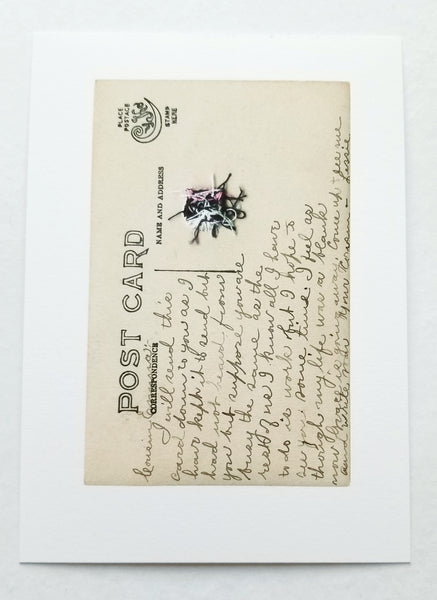 PLACE
POSTAGE
STAMP
HERE
POST CARD
CORRESPONDENCE
NAME AND ADDRESS
Cousin
I will send this
card down to you as I
have kept it to send but
had not heard from
you but suppose you are
busy the same as the
rest of us I know all I have
to do is work but I hope to
see you some time. I feel as
though my life was a blank
now Grace is away Come up & see me
and write Your Cousin - Lessie